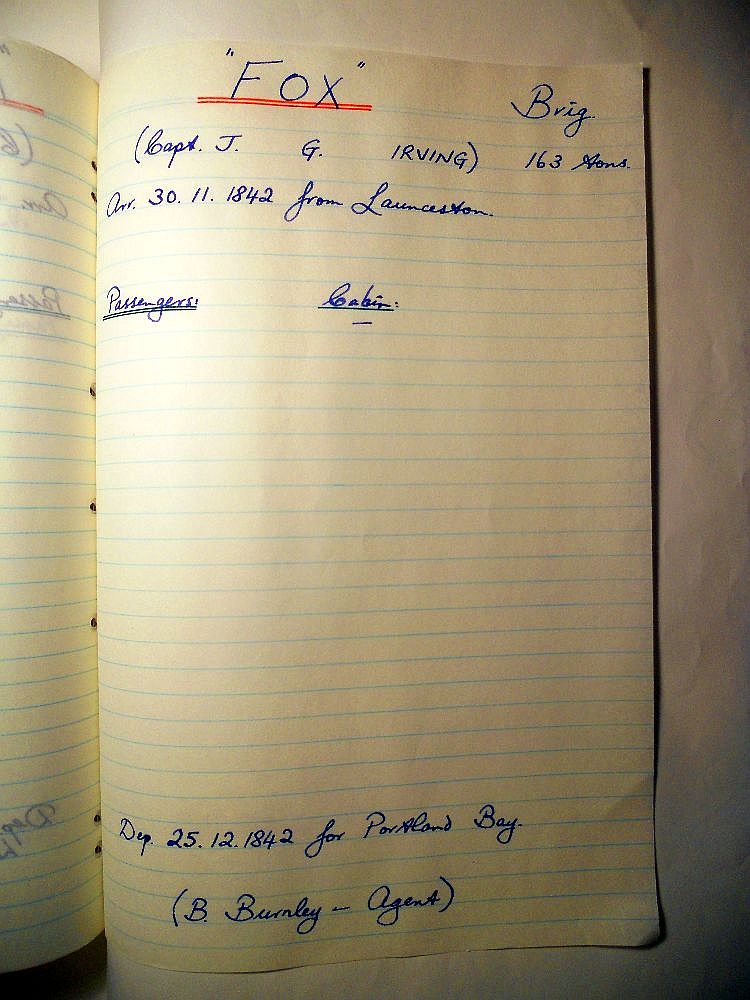 "FOX" Brig.
(Capt. J. G. IRVING) 163 tons.
Arr. 30. 11. 1842 from Launceston.
Passengers: Cabin:
—
Dep. 25. 12. 1842 for Portland Bay.
(B. Burnley — Agent)